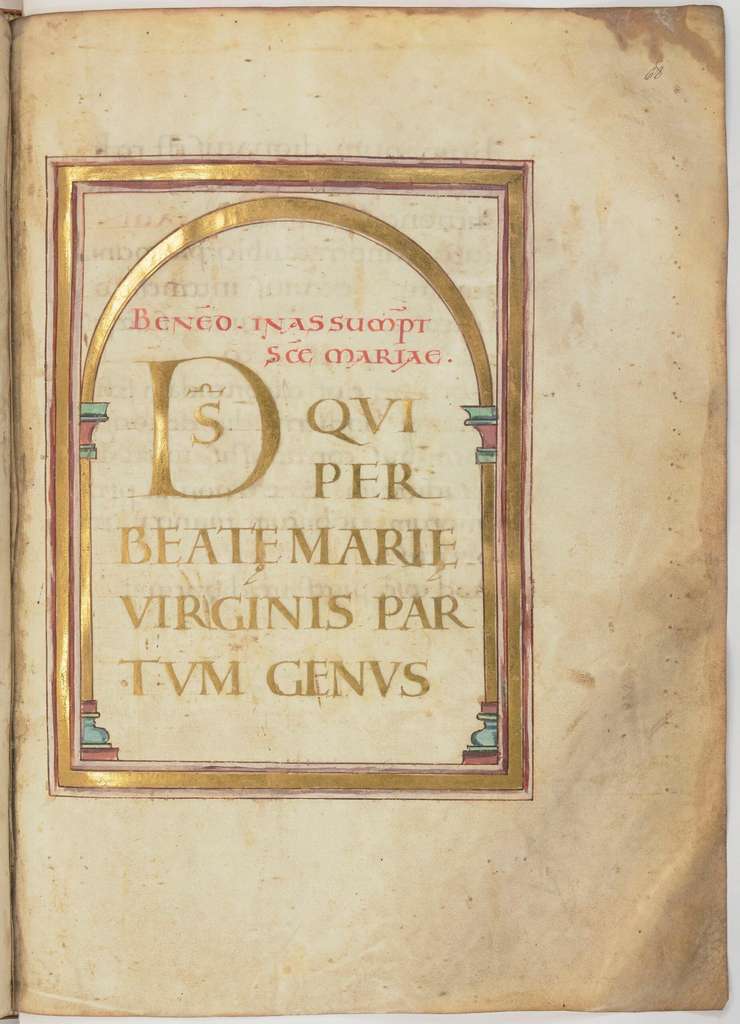 68
BENEÐO. IN ASSUMPT̄
SCĒ MARIAE.
DS̄ QVI
PER
BEATĘ MARIĘ
VIRGINIS PAR
TVM GENVS